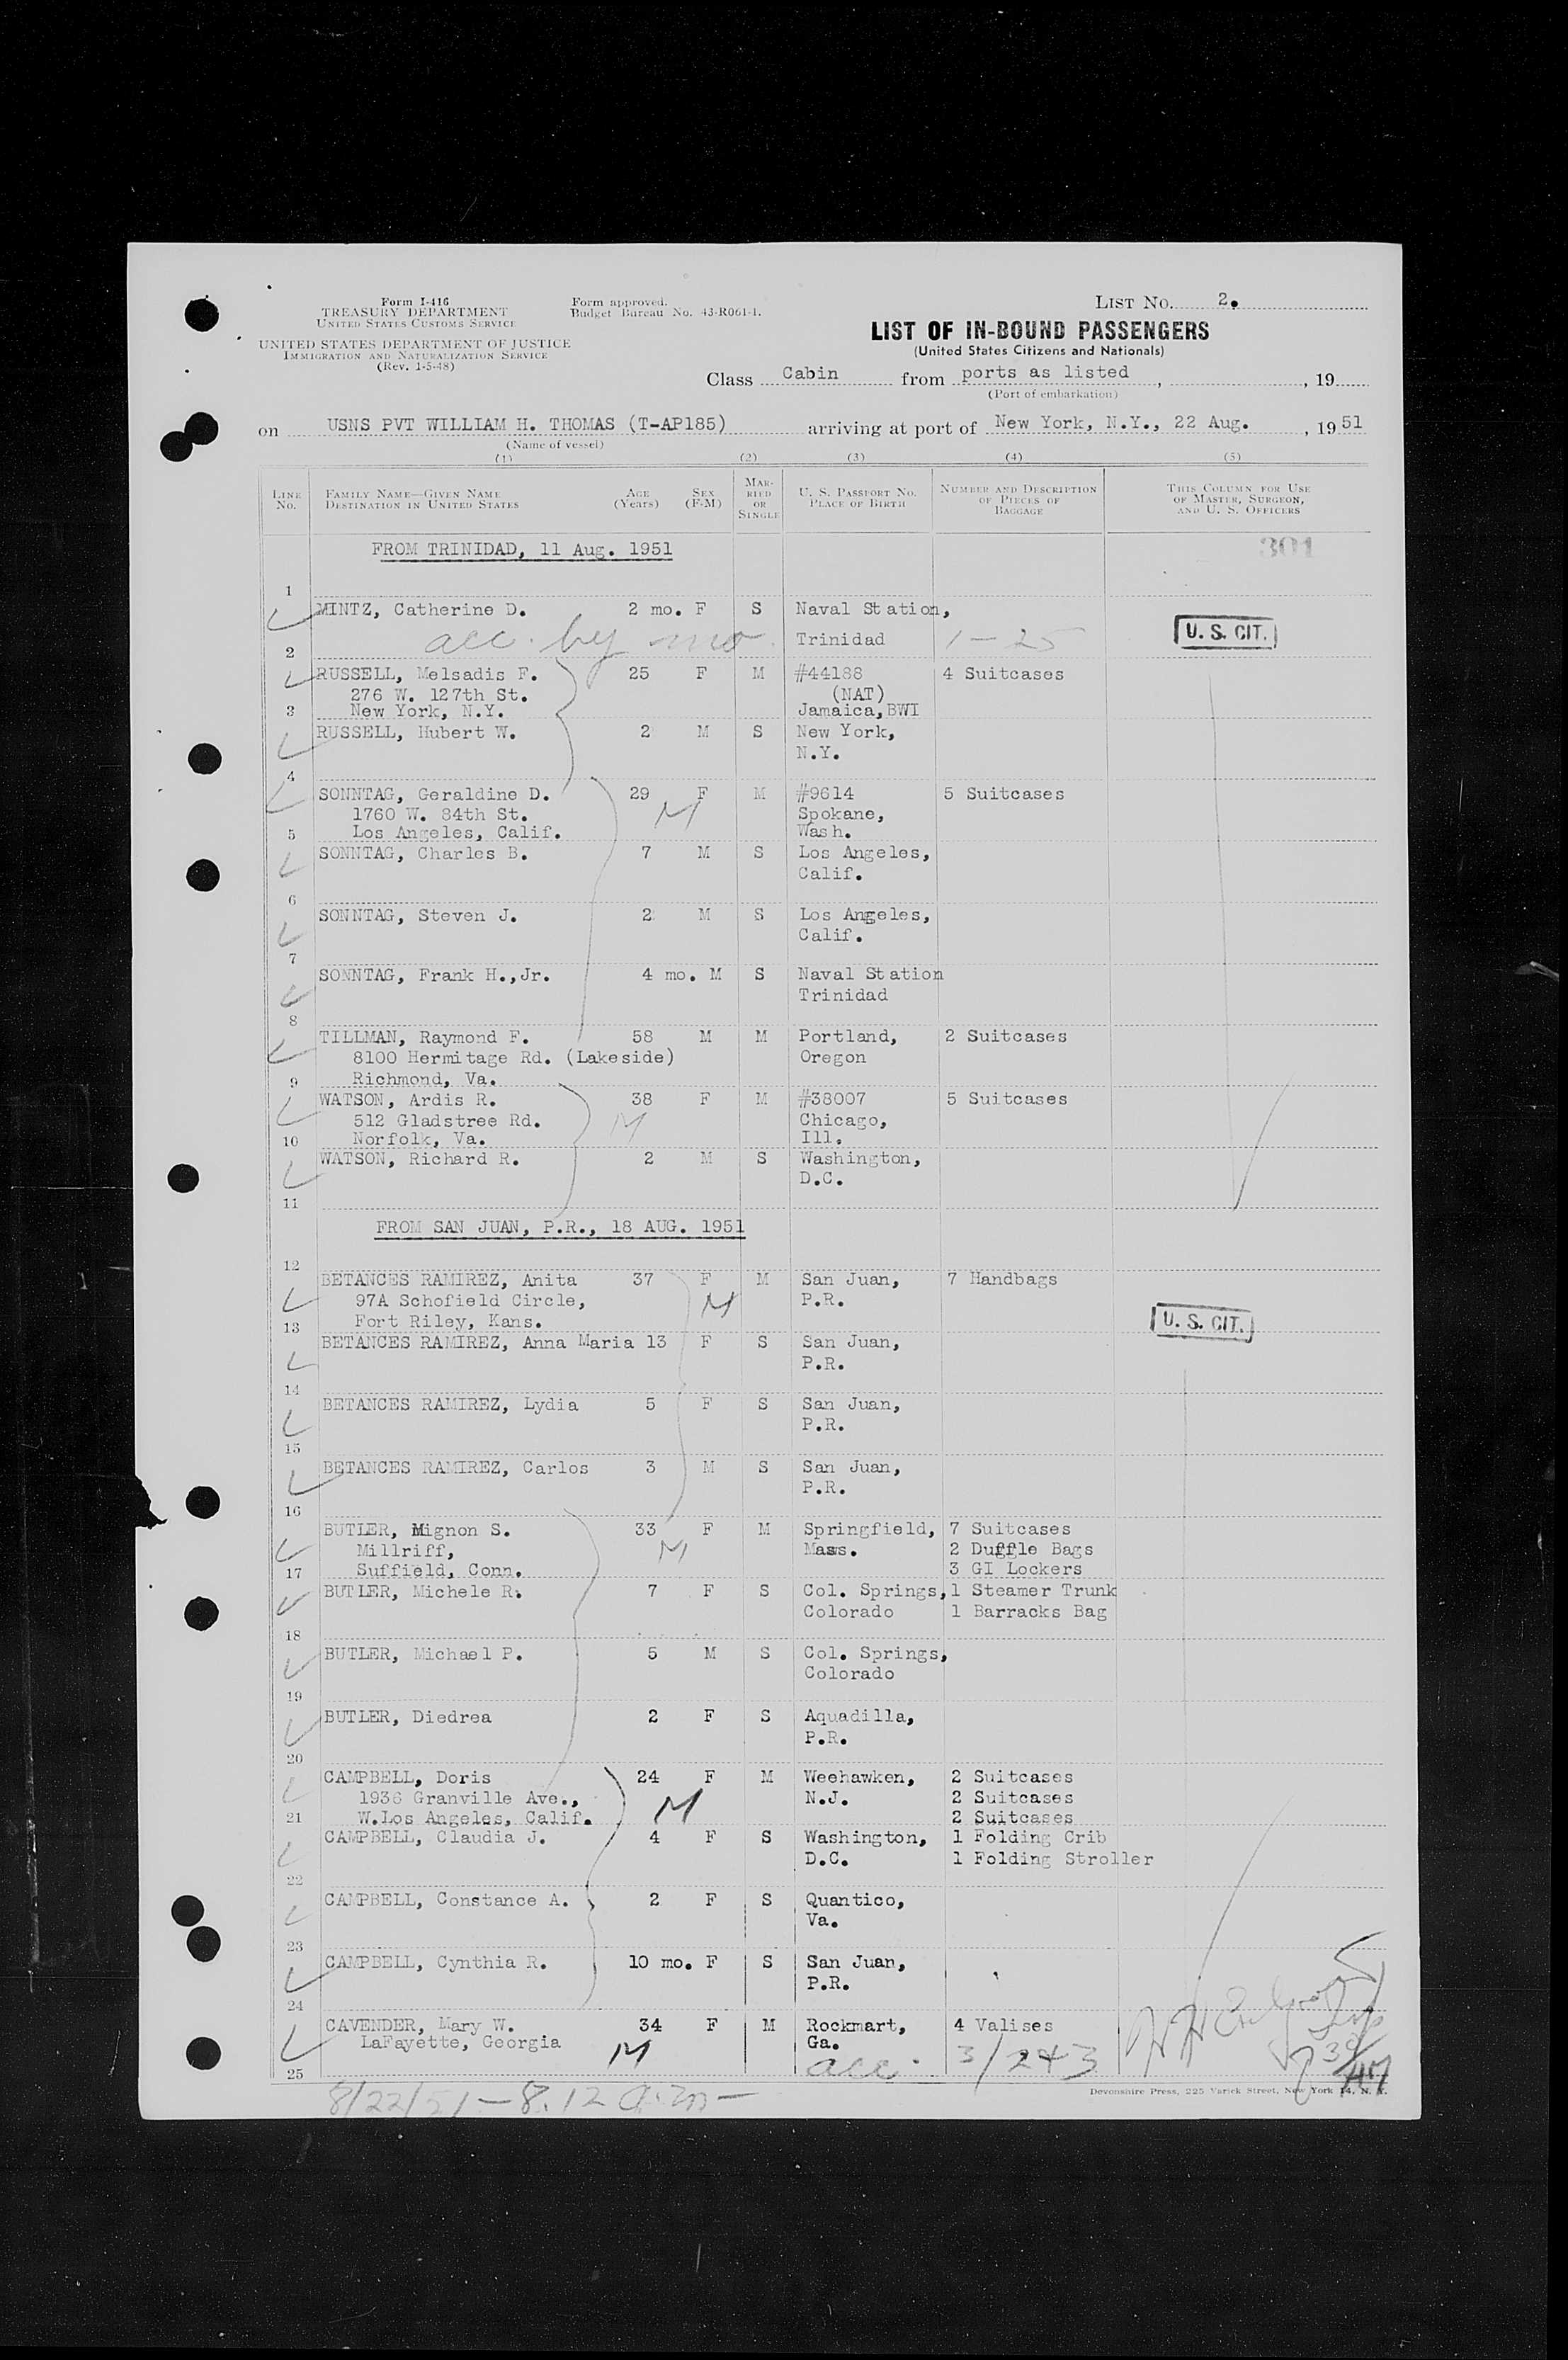 Form I-416
TREASURY DEPARTMENT
UNITED STATES CUSTOMS SERVICE
UNITED STATES DEPARTMENT OF JUSTICE
IMMIGRATION AND NATURALIZATION SERVICE
(Rev. 1-5-48)
Form approved.
Budget Bureau No. 43-R061-1.
LIST No. 2.
LIST OF IN-BOUND PASSENGERS
(United States Citizens and Nationals)
Class Cabin from ports as listed, , 19
(Port of embarkation)
on USNS PVT WILLIAM H. THOMAS (T-AP185) arriving at port of New York, N.Y., 22 Aug. , 19 51
(Name of vessel)
(1) (2) (3) (4) (5)
LINE No. FAMILY NAME—GIVEN NAME DESTINATION IN UNITED STATES AGE (Years) SEX (F-M) MARRIED OR SINGLE U. S. PASSPORT NO. PLACE OF BIRTH NUMBER AND DESCRIPTION OF PIECES OF BAGGAGE THIS COLUMN FOR USE OF MASTER, SURGEON, AND U. S. OFFICERS
FROM TRINIDAD, 11 Aug. 1951 301
1
MINTZ, Catherine D. 2 mo. F S Naval Station,
acc. by mo. Trinidad 1-25 U. S. CIT.
2
RUSSELL, Melsadis F. 25 F M #44188 4 Suitcases
276 W. 127th St. (NAT)
3 New York, N.Y. Jamaica,BWI
RUSSELL, Hubert W. 2 M S New York,
N.Y.
4
SONNTAG, Geraldine D. 29 F M #9614 5 Suitcases
1760 W. 84th St. M Spokane,
5 Los Angeles, Calif. Wash.
SONNTAG, Charles B. 7 M S Los Angeles,
Calif.
6
SONNTAG, Steven J. 2 M S Los Angeles,
Calif.
7
SONNTAG, Frank H.,Jr. 4 mo. M S Naval Station
Trinidad
8
TILLMAN, Raymond F. 58 M M Portland, 2 Suitcases
8100 Hermitage Rd. (Lakeside) Oregon
9 Richmond, Va.
WATSON, Ardis R. 38 F M #38007 5 Suitcases
512 Gladstree Rd. M Chicago,
10 Norfolk, Va. Ill.
WATSON, Richard R. 2 M S Washington,
D.C.
11
FROM SAN JUAN, P.R., 18 AUG. 1951
12
BETANCES RAMIREZ, Anita 37 F M San Juan, 7 Handbags
97A Schofield Circle, M P.R.
13 Fort Riley, Kans. U. S. CIT.
BETANCES RAMIREZ, Anna Maria 13 F S San Juan,
P.R.
14
BETANCES RAMIREZ, Lydia 5 F S San Juan,
P.R.
15
BETANCES RAMIREZ, Carlos 3 M S San Juan,
P.R.
16
BUTLER, Mignon S. 33 F M Springfield, 7 Suitcases
Millriff, M Mass. 2 Duffle Bags
17 Suffield, Conn. 3 GI Lockers
BUTLER, Michele R. 7 F S Col. Springs, 1 Steamer Trunk
Colorado 1 Barracks Bag
18
BUTLER, Michael P. 5 M S Col. Springs,
Colorado
19
BUTLER, Diedrea 2 F S Aquadilla,
P.R.
20
CAMPBELL, Doris 24 F M Weehawken, 2 Suitcases
1936 Granville Ave., M N.J. 2 Suitcases
21 W.Los Angeles, Calif. 2 Suitcases
CAMPBELL, Claudia J. 4 F S Washington, 1 Folding Crib
D.C. 1 Folding Stroller
22
CAMPBELL, Constance A. 2 F S Quantico,
Va.
23
CAMPBELL, Cynthia R. 10 mo. F S San Juan,
P.R.
24
CAVENDER, Mary W. 34 F M Rockmart, 4 Valises
LaFayette, Georgia M Ga.
25 acc. 3/243
8/22/51-8.12 a.m-
Devonshire Press, 225 Varick Street, New York 14, N. Y.